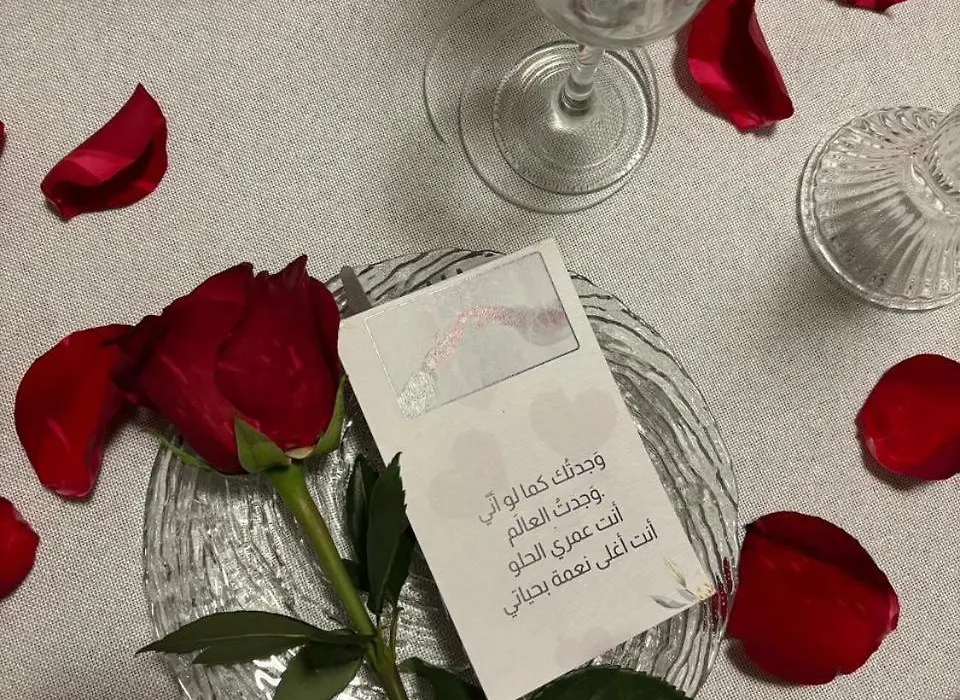 وَجدتُك كما لو أنّي
وَجدتُ العالَم.
أنت عمري الحلو
أنت أغلى نعمة بحياتي